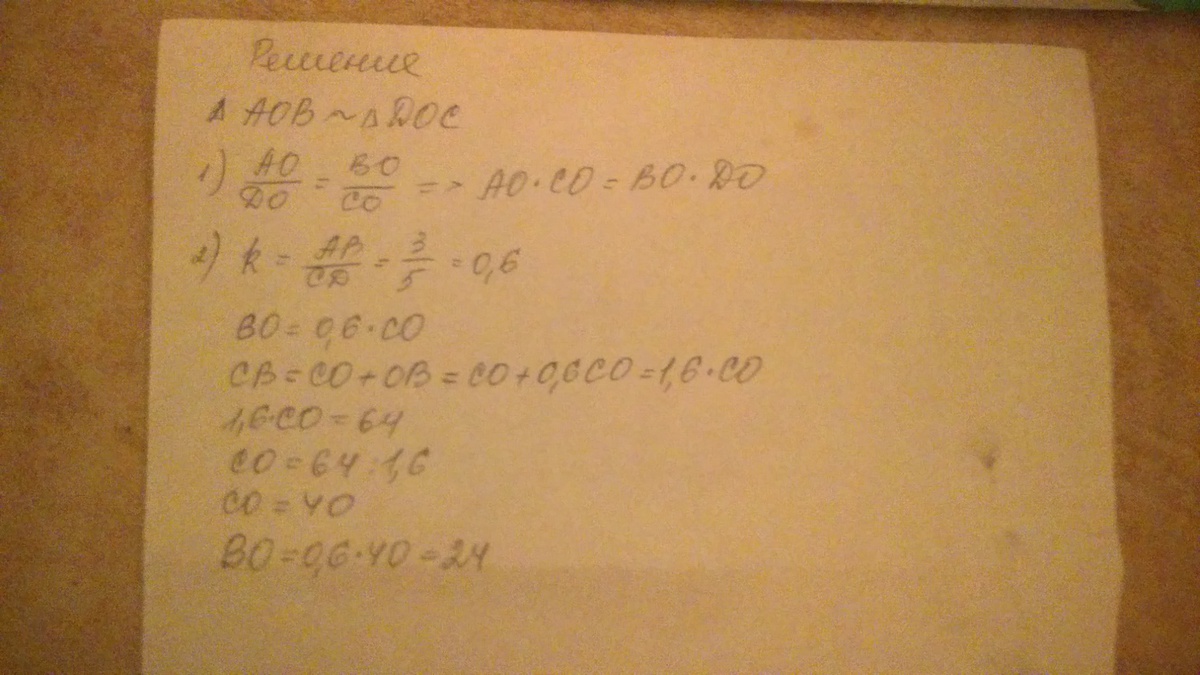 Решение
Δ AOB ~ Δ DOC
1) AO/DO = BO/CO => AO · CO = BO · DO
2) k = AB/CD = 3/5 = 0,6
BO = 0,6 · CO
CB = CO + OB = CO + 0,6CO = 1,6 · CO
1,6·CO = 64
CO = 64 : 1,6
CO = 40
BO = 0,6 · 40 = 24